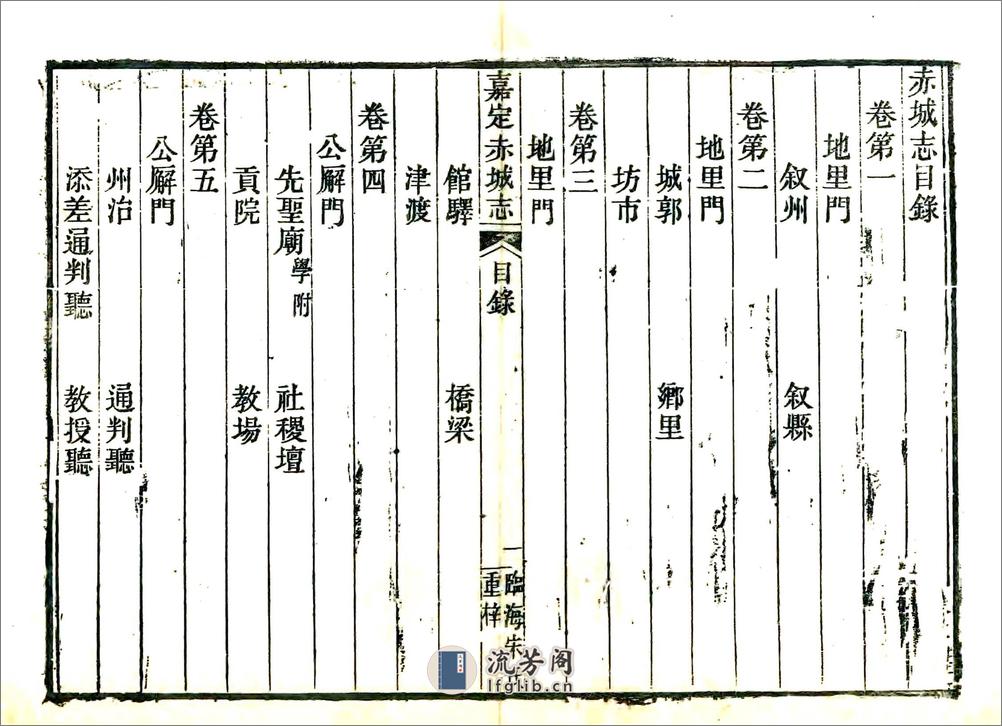 赤城志目錄
卷第一
地里門
叙州 叙縣
卷第二
地里門
城郭 鄉里
坊市
卷第三
地里門
嘉定赤城志 目錄 一 臨海宋
重梓
館驛 橋梁
津渡
卷第四
公廨門
先聖廟學附 社稷壇
貢院 教場
卷第五
公廨門
州治 通判聽
添差通判聽 教授聽
流芳阁
lfglib.cn